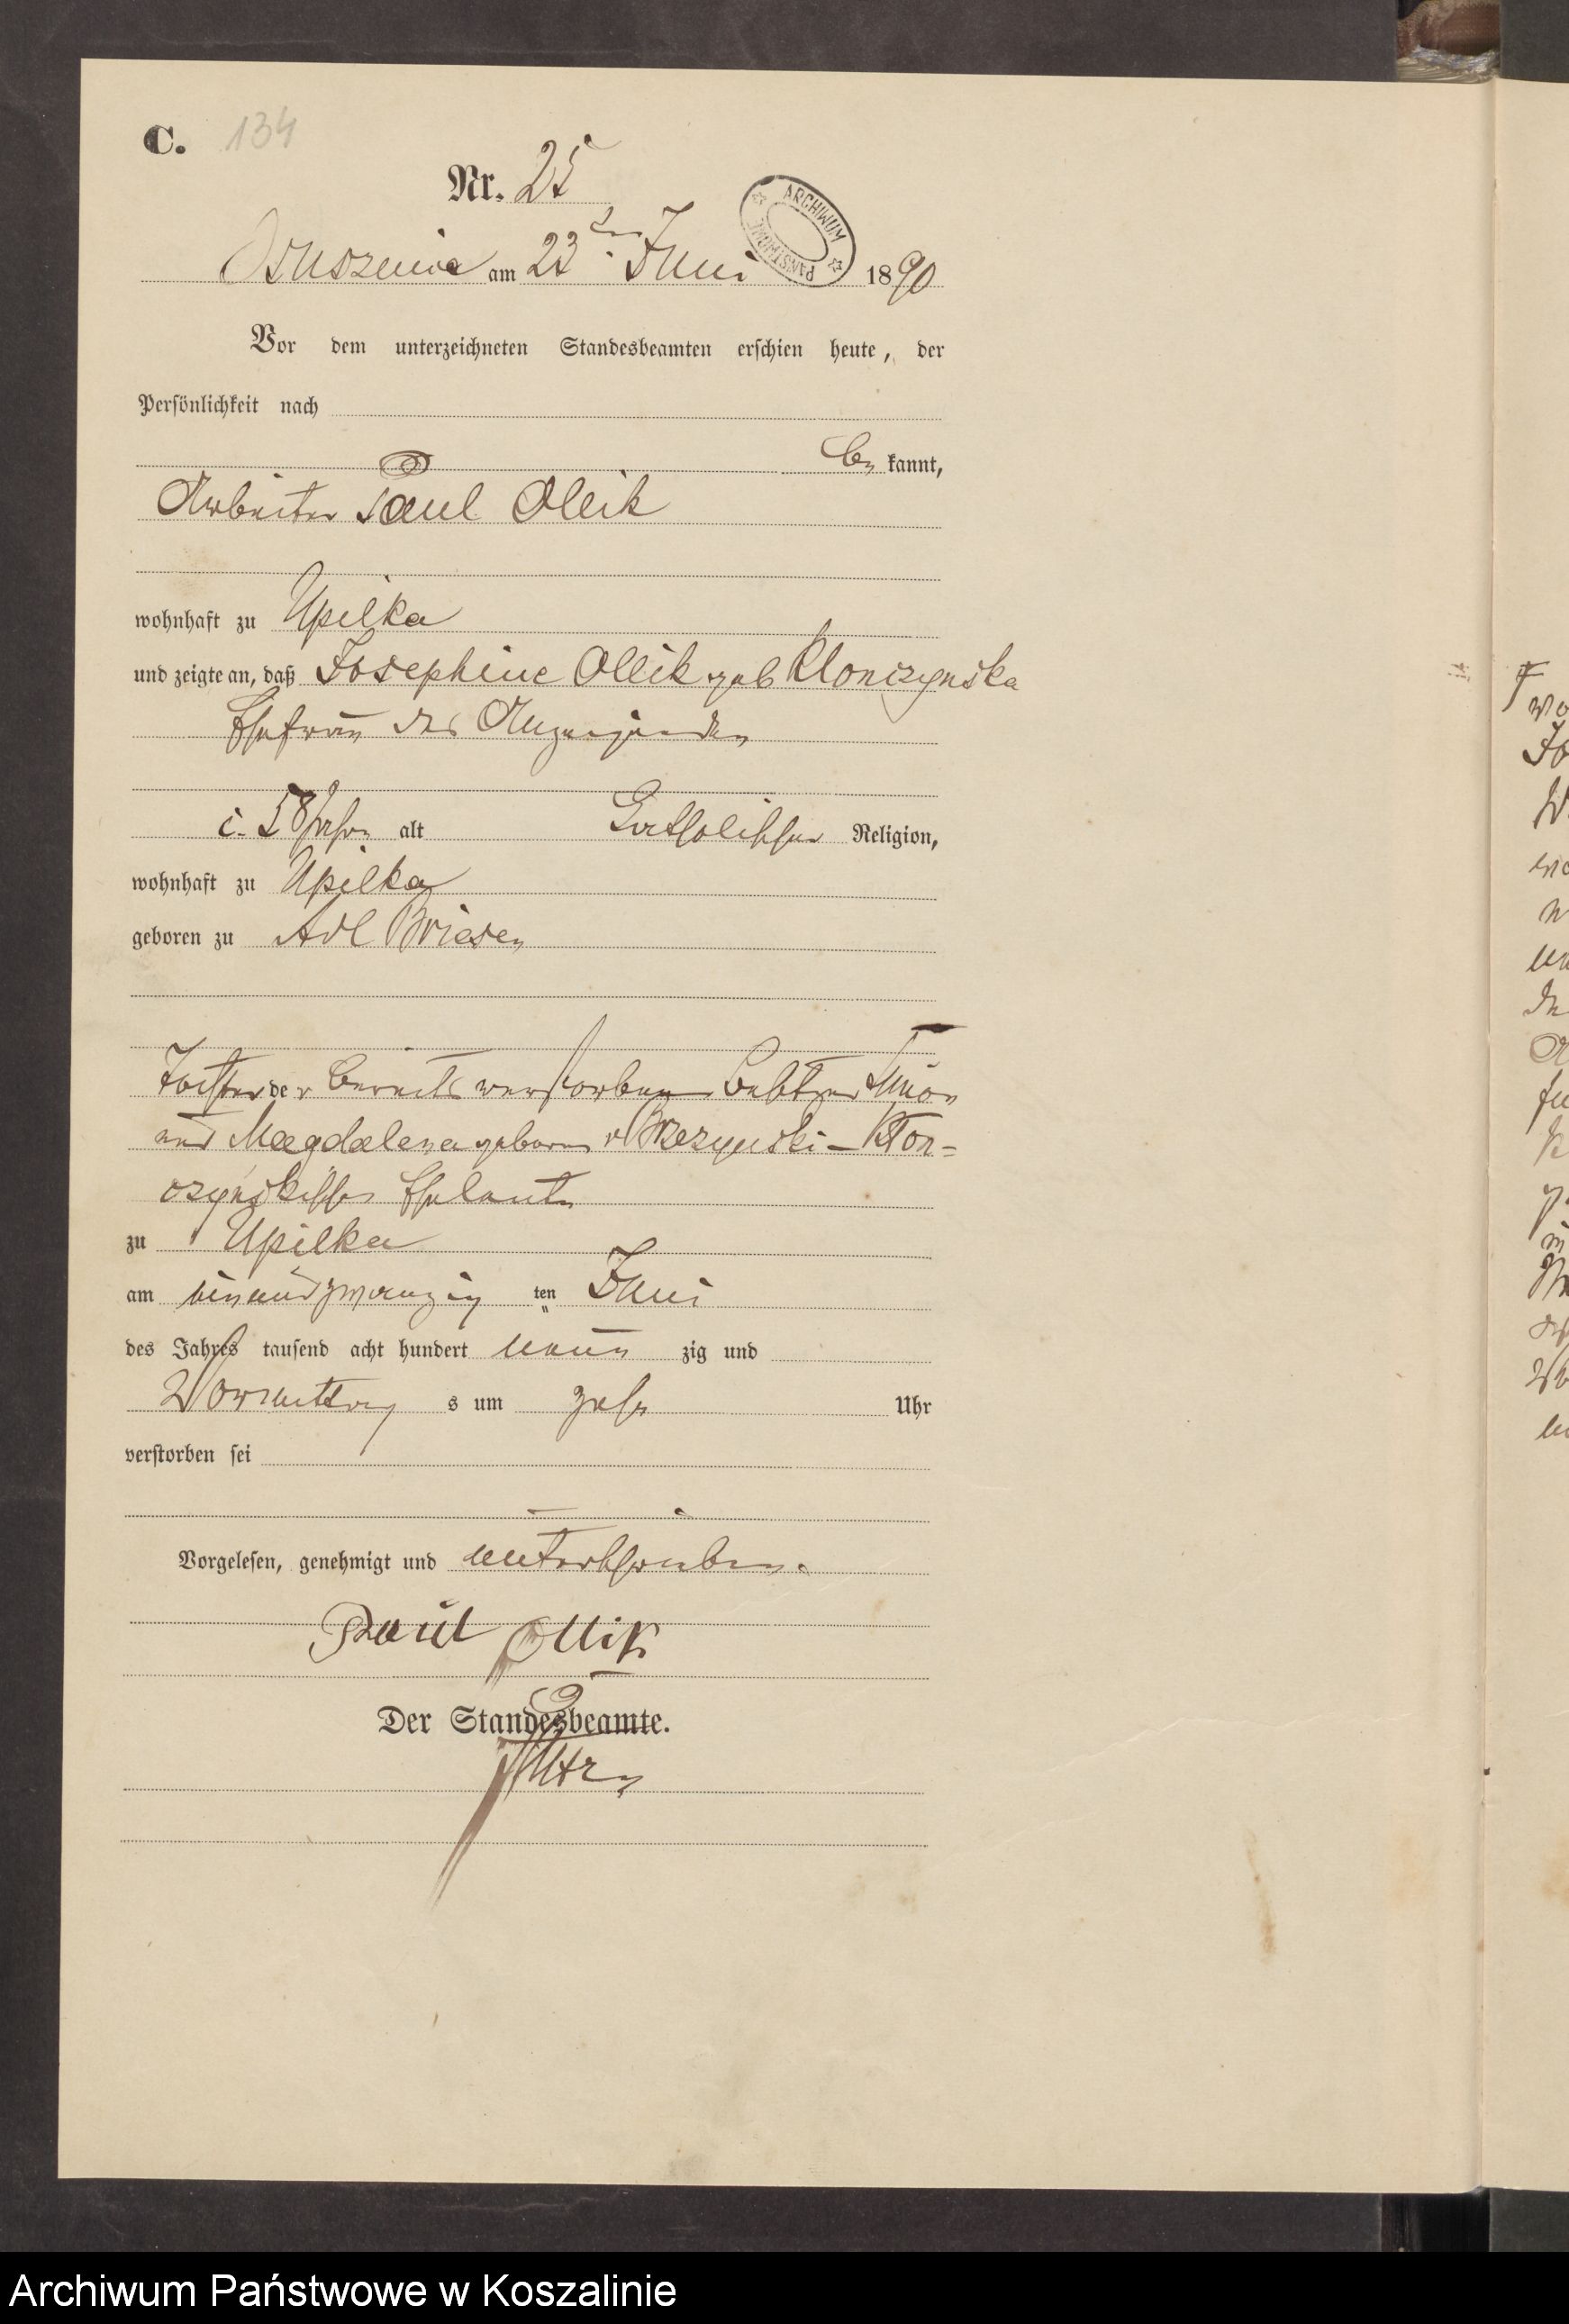 C. 134
Nr. 25
ARCHIWUM PAŃSTWOWE
am 23ten Juni 1890
Vor dem unterzeichneten Standesbeamten erschien heute, der
Persönlichkeit nach
be kannt,
Arbeiter Paul Ollik
wohnhaft zu Upilka
und zeigte an, daß Josephine Ollik geb Klonczynska
Ehefrau des Anzeigenden
58 Jahre alt katholischer Religion,
wohnhaft zu Upilka
geboren zu Adl Briesen
Tochter der bereits verstorbenen
und Magdalena geborne
czynskischen Eheleute
zu Upilka
am einundzwanzig ten Juni
des Jahres tausend acht hundert neun zig und
Vormittag s um zehn Uhr
verstorben sei
Vorgelesen, genehmigt und unterschrieben.
Paul Ollik
Der Standesbeamte.
Archiwum Państwowe w Koszalinie